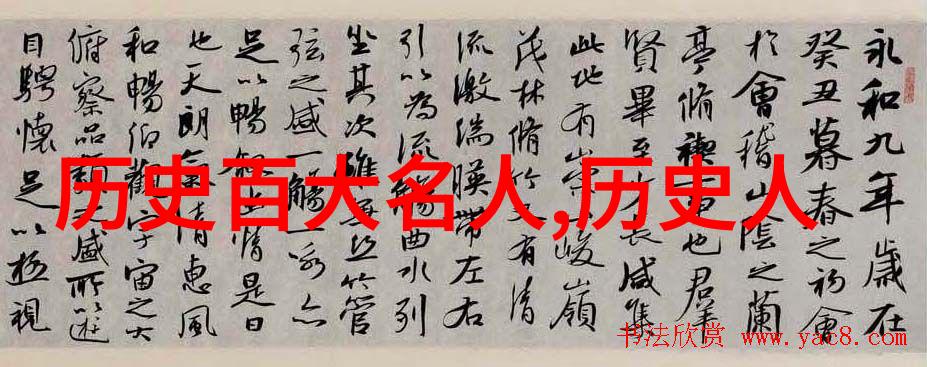 永和九年歲在
癸丑暮春之初會
於會稽山陰之蘭
亭脩禊事也群
賢畢至少長咸集
此地有崇山峻嶺
茂林脩竹又有清
流激湍暎帶左右
引以為流觴曲水列
坐其次雖無絲竹管
弦之盛一觴一詠亦
足以暢敘幽情是日
也天朗氣清惠風
和暢仰觀宇宙之大
俯察品類之盛所以遊
目騁懷足以極視
历史百大名人,历史人
书法欣赏 www.yac8.com